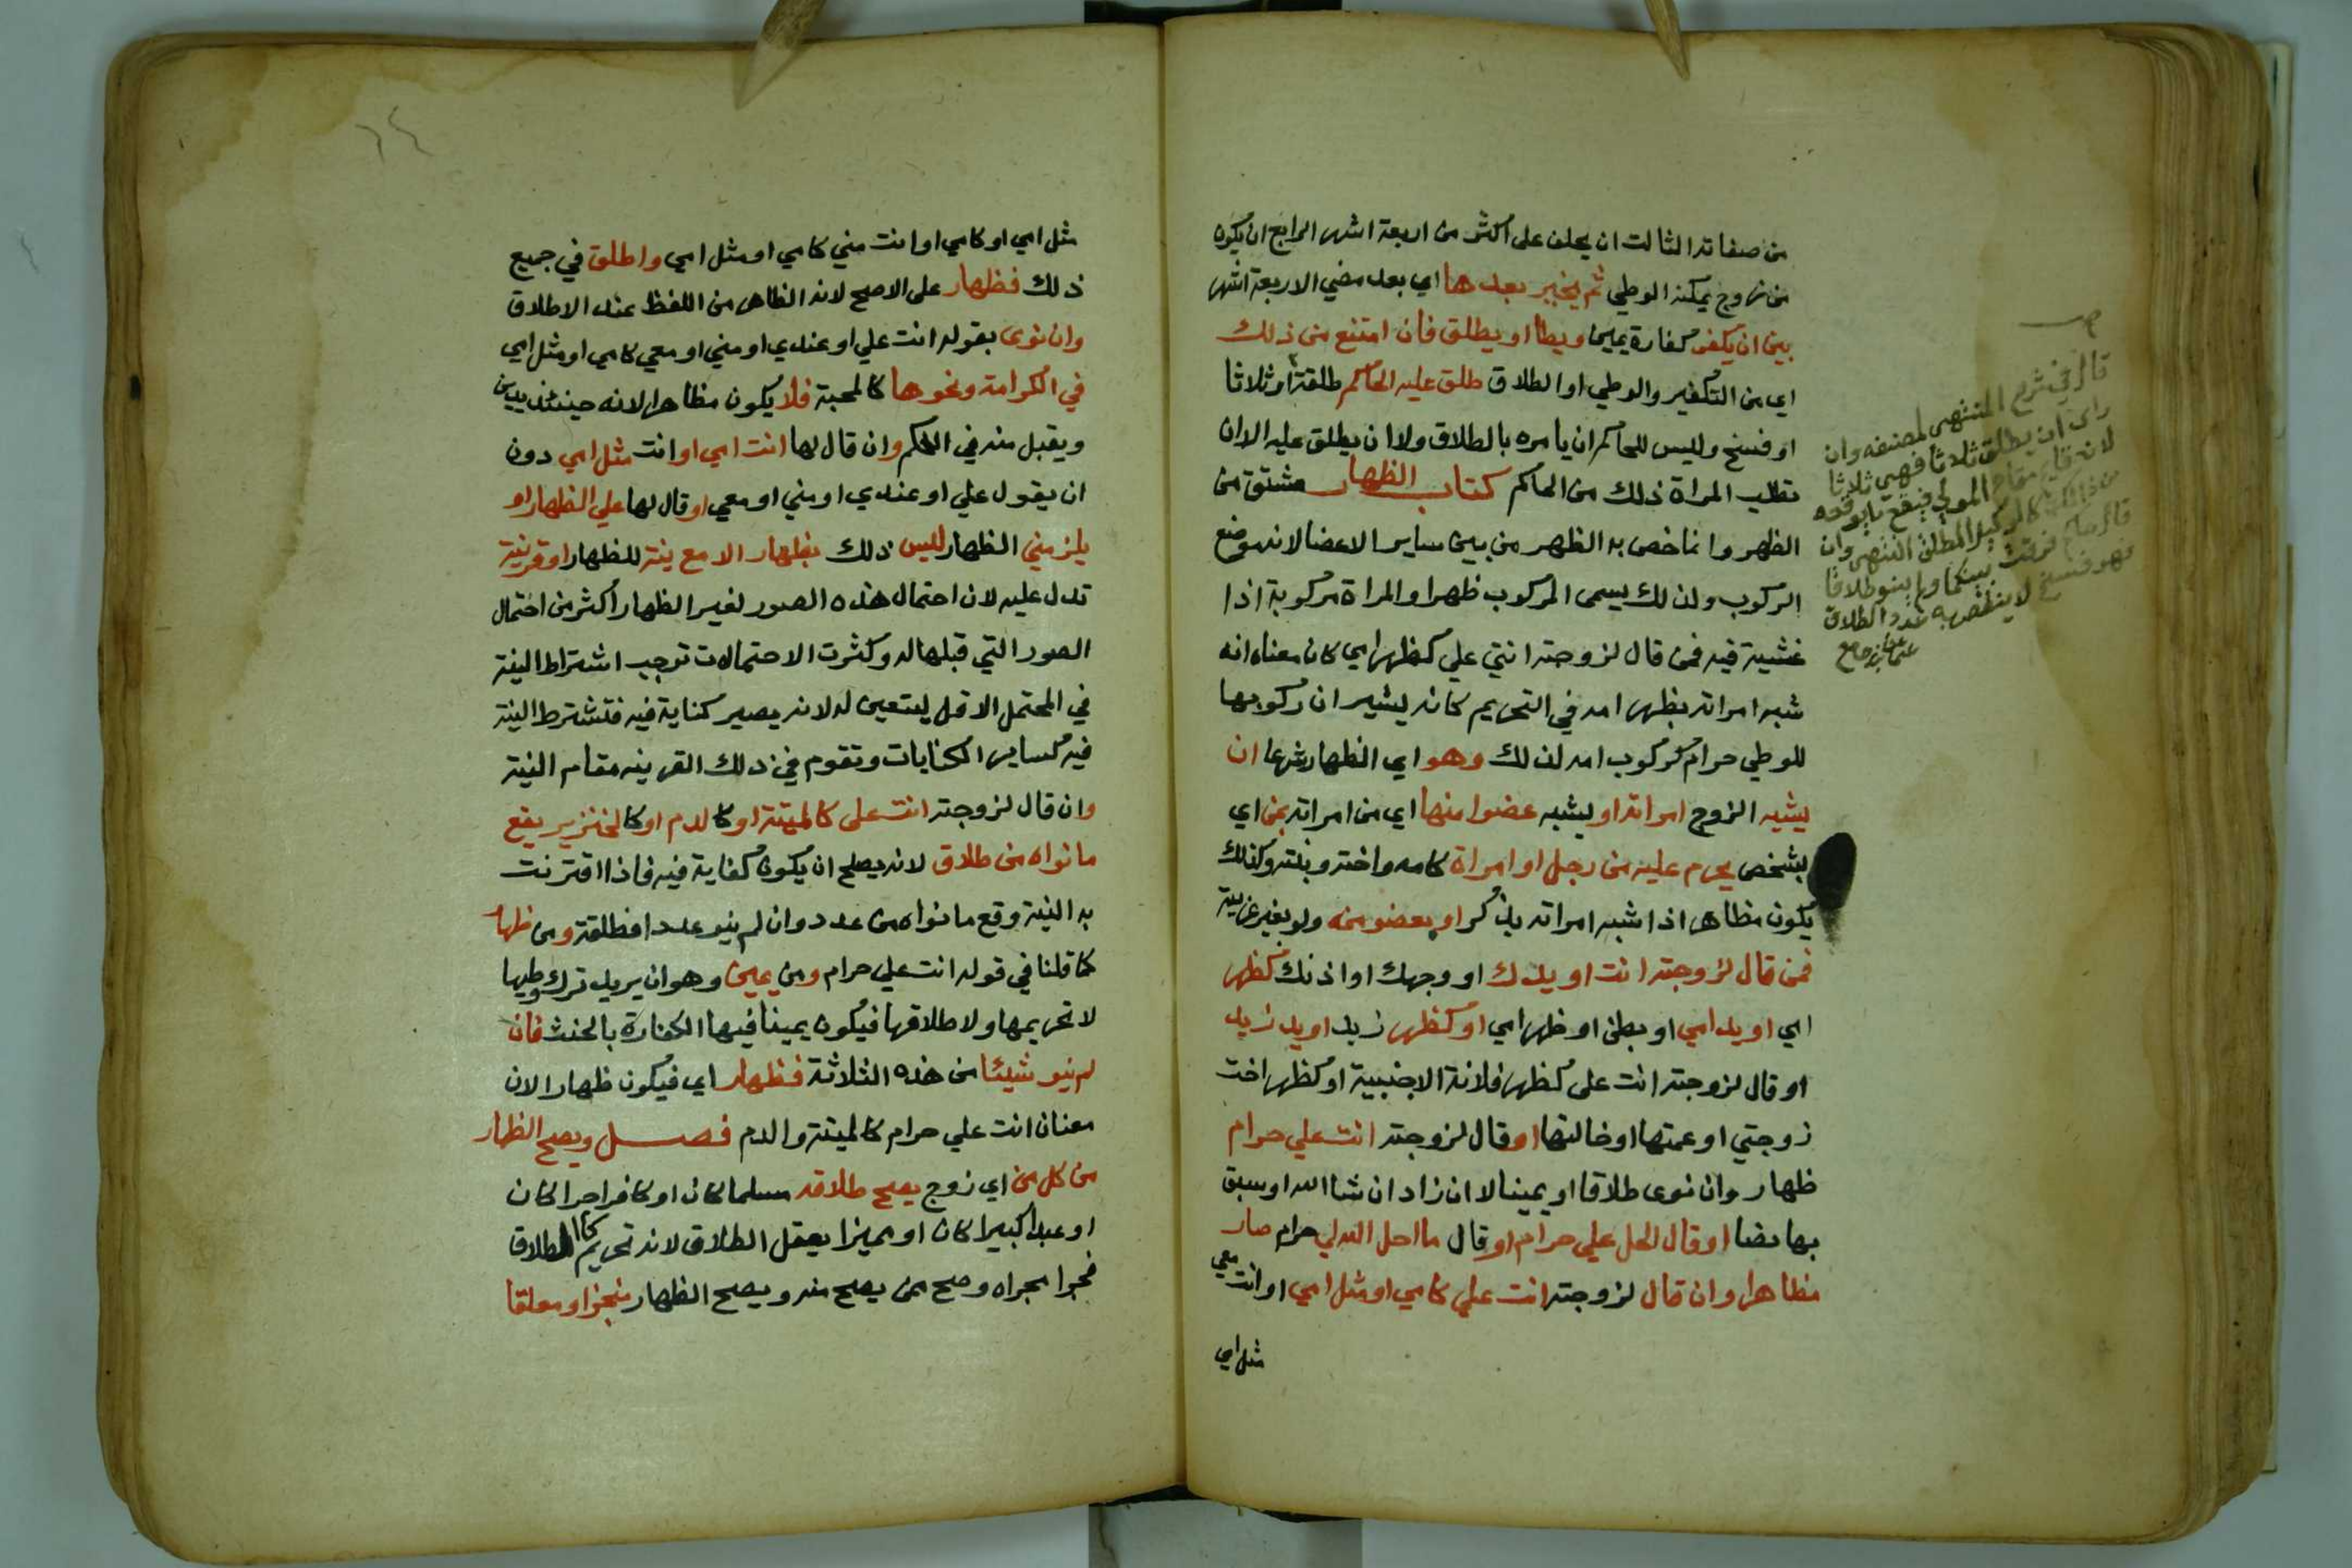 من صفاته الثالث ان يحلف على اكثر من اربعة اشهر الرابع ان يكون
من زوج يمكنه الوطي ثم يخير بعدها اي بعد مضي الاربعة اشهر
بين ان يكفر كفارة يمين او يطا او يطلق فان امتنع من ذلك
اي من التكفير والوطي او الطلاق طلق عليه الحاكم طلقة او ثلاثا
او فسخ وليس للحاكم ان يامره بالطلاق ولا ان يطلق عليه الا ان
تطلب المراة ذلك من الحاكم كتاب الظهار مشتق من
الظهر وانما خص به الظهر من بين ساير الاعضا لانه موضع
الركوب ولذلك يسمى المركوب ظهرا والمراة مركوبة اذا
غشيت فيه فمن قال لزوجته انتي علي كظهر امي كان معناه انه
شبه امراته بظهر امه في التحريم كانه يشير ان ركوبها
للوطي حرام كركوب امه لذلك وهو اي الظهار شرعا ان
يشبه الزوج امراته او يشبه عضوا منها اي من امراته بمن اي
بشخص يحرم عليه من رجل او امراة كامه واخته وبنته وكذلك
يكون مظاهرا اذا شبه امراته بذكر او بعضو منه ولو بغير عربية
فمن قال لزوجته انت او يدك او وجهك او اذنك كظهر
امي او يد امي او بطن او ظهر امي او كظهر زيد او يد زيد
او قال لزوجته انت على كظهر فلانة الاجنبية او كظهر اخت
زوجتي او عمتها او خالتها او قال لزوجته انت علي حرام
ظهار وان نوى طلاقا او يمينا لا ان زاد ان شا الله او سبق
بها نصا او قال الحل علي حرام او قال ما احل الله لي حرام صار
مظاهرا وان قال لزوجته انت علي كامي او مثل امي او انت معي
مثل امي
قال في شرح المنتهى لمصنفه وان
راى ان يطلق ثلاثا فهي ثلاثا
لانه قام مقام المولي فيقع ما يوقعه
من ذلك كالوكيل المطلق انتهى وان
قال حاكم فرقت بينكما ولم ينو طلاقا
فهو فسخ لا ينقص به عدد الطلاق
عثمان بن جامع
مثل امي او كامي او انت مني كامي او مثل امي واطلق في جميع
ذلك فظهار على الاصح لانه الظاهر من اللفظ عند الاطلاق
وان نوى بقوله انت علي او عندي او مني او معي كامي او مثل امي
في الكرامة ونحوها كالمحبة فلا يكون مظاهرا لانه حينئذ يدين
ويقبل منه في الحكم وان قال لها انت امي او انت مثل امي دون
ان يقول علي او عندي او مني او معي او قال لها علي الظهار او
يلزمني الظهار ليس ذلك بظهار الا مع نية للظهار او قرينة
تدل عليه لان احتمال هذه الصور لغير الظهار اكثر من احتمال
الصور التي قبلها له وكثرت الاحتمالات توجب اشتراط النية
في المحتمل الاقل ليتعين له لانه يصير كناية فيه فتشترط النية
فيه كساير الكنايات وتقوم في ذلك القرينه مقام النية
وان قال لزوجته انت على كالميتة او كالدم او كالخنزير يقع
ما نواه من طلاق لانه يصلح ان يكون كفاية فيه فاذا اقترنت
به النية وقع ما نواه من عدد وان لم ينو عددا فطلقة ومن ظهار
كما قلنا في قوله انت علي حرام ومن يمين وهو ان يريد ترك وطيها
لا تحريمها ولا طلاقها فيكون يمينا فيها الكفارة بالحنث فان
لم ينو شيئا من هذه الثلاثة فظهار اي فيكون ظهارا لان
معناه انت علي حرام كالميتة والدم فصل ويصح الظهار
من كل من اي زوج يصح طلاقه مسلما كان او كافرا حرا كان
او عبدا كبيرا كان او مميزا يعقل الطلاق لانه تحريم كالطلاق
فجرا مجراه وصح ممن يصح منه ويصح الظهار منجزا او معلقا